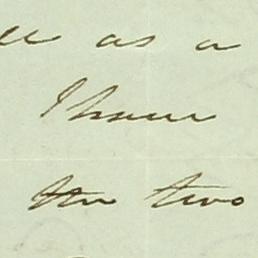 as a
I have
the two